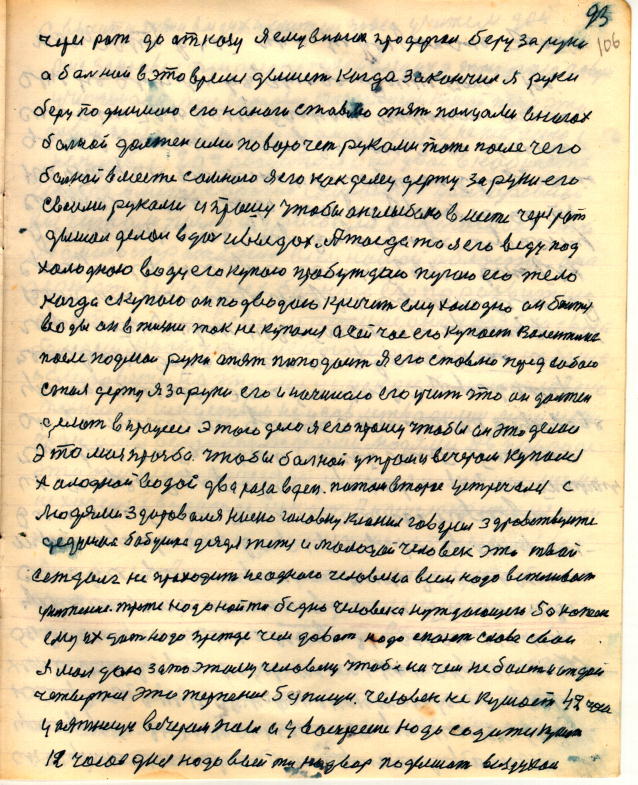 93
106
через рот до отказу я ему в писи продержал беру за руки
а балной в это время дышет когда закончил я руки
беру поднимаю его на ноги ставлю опят попцали в ногах
балной должен или поворочет руками тоже после чего
балной вместе со мною я его как делу держу за руки его
своими руками и прошу чтобы он глыбоко вместе через рот
дышал делал вдох и выдох. А тогда то я его веду под
холодною воду его купаю пробуждаю пугаю его тело
когда скупаю он под водою кричит ему холодно он боится
воды он в жизни так не купался а сейчас его купает
после подмои руки опят попадает я его ставлю перед сабою
стал держу я за руки его и начинаю его учит что он должен
делат в процессе этого дело я его прошу чтобы он это делал
Это моя прозба. чтобы балной утром и вечером купался
холодной водой два раза в ден. потом второе устречался с
людями здоровался низко головку клонил говорил здравствуйте
дедушка бабушка дядя тетя и молодой человек это твой
не проходит не одного человека всем надо
третте надо найти бедно человека нуждающего 50 копеек
ему их дат надо прежде чем дават надо сказат слова свои
я мол даю за то этому человеку чтобы ни чем не болет и отдай
четвертое это терпение без пищи. человек не кушает 42 часа
у пятницу вечером поел а у воскресене надо садится кушат
12 часов дня надо выйти на двор подышат воздухом